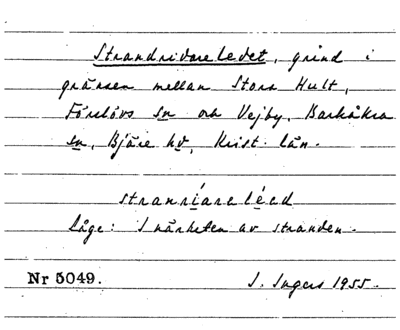 Strandridareledet, grind i
gränsen mellan Stora Hult,
Förslövs sn och Vejby, Barkåkra
sn, Bjäre hd, Krist. län.
stranríareléed
Läge: I närheten av stranden.
Nr 5049. I. Ingers 1955.